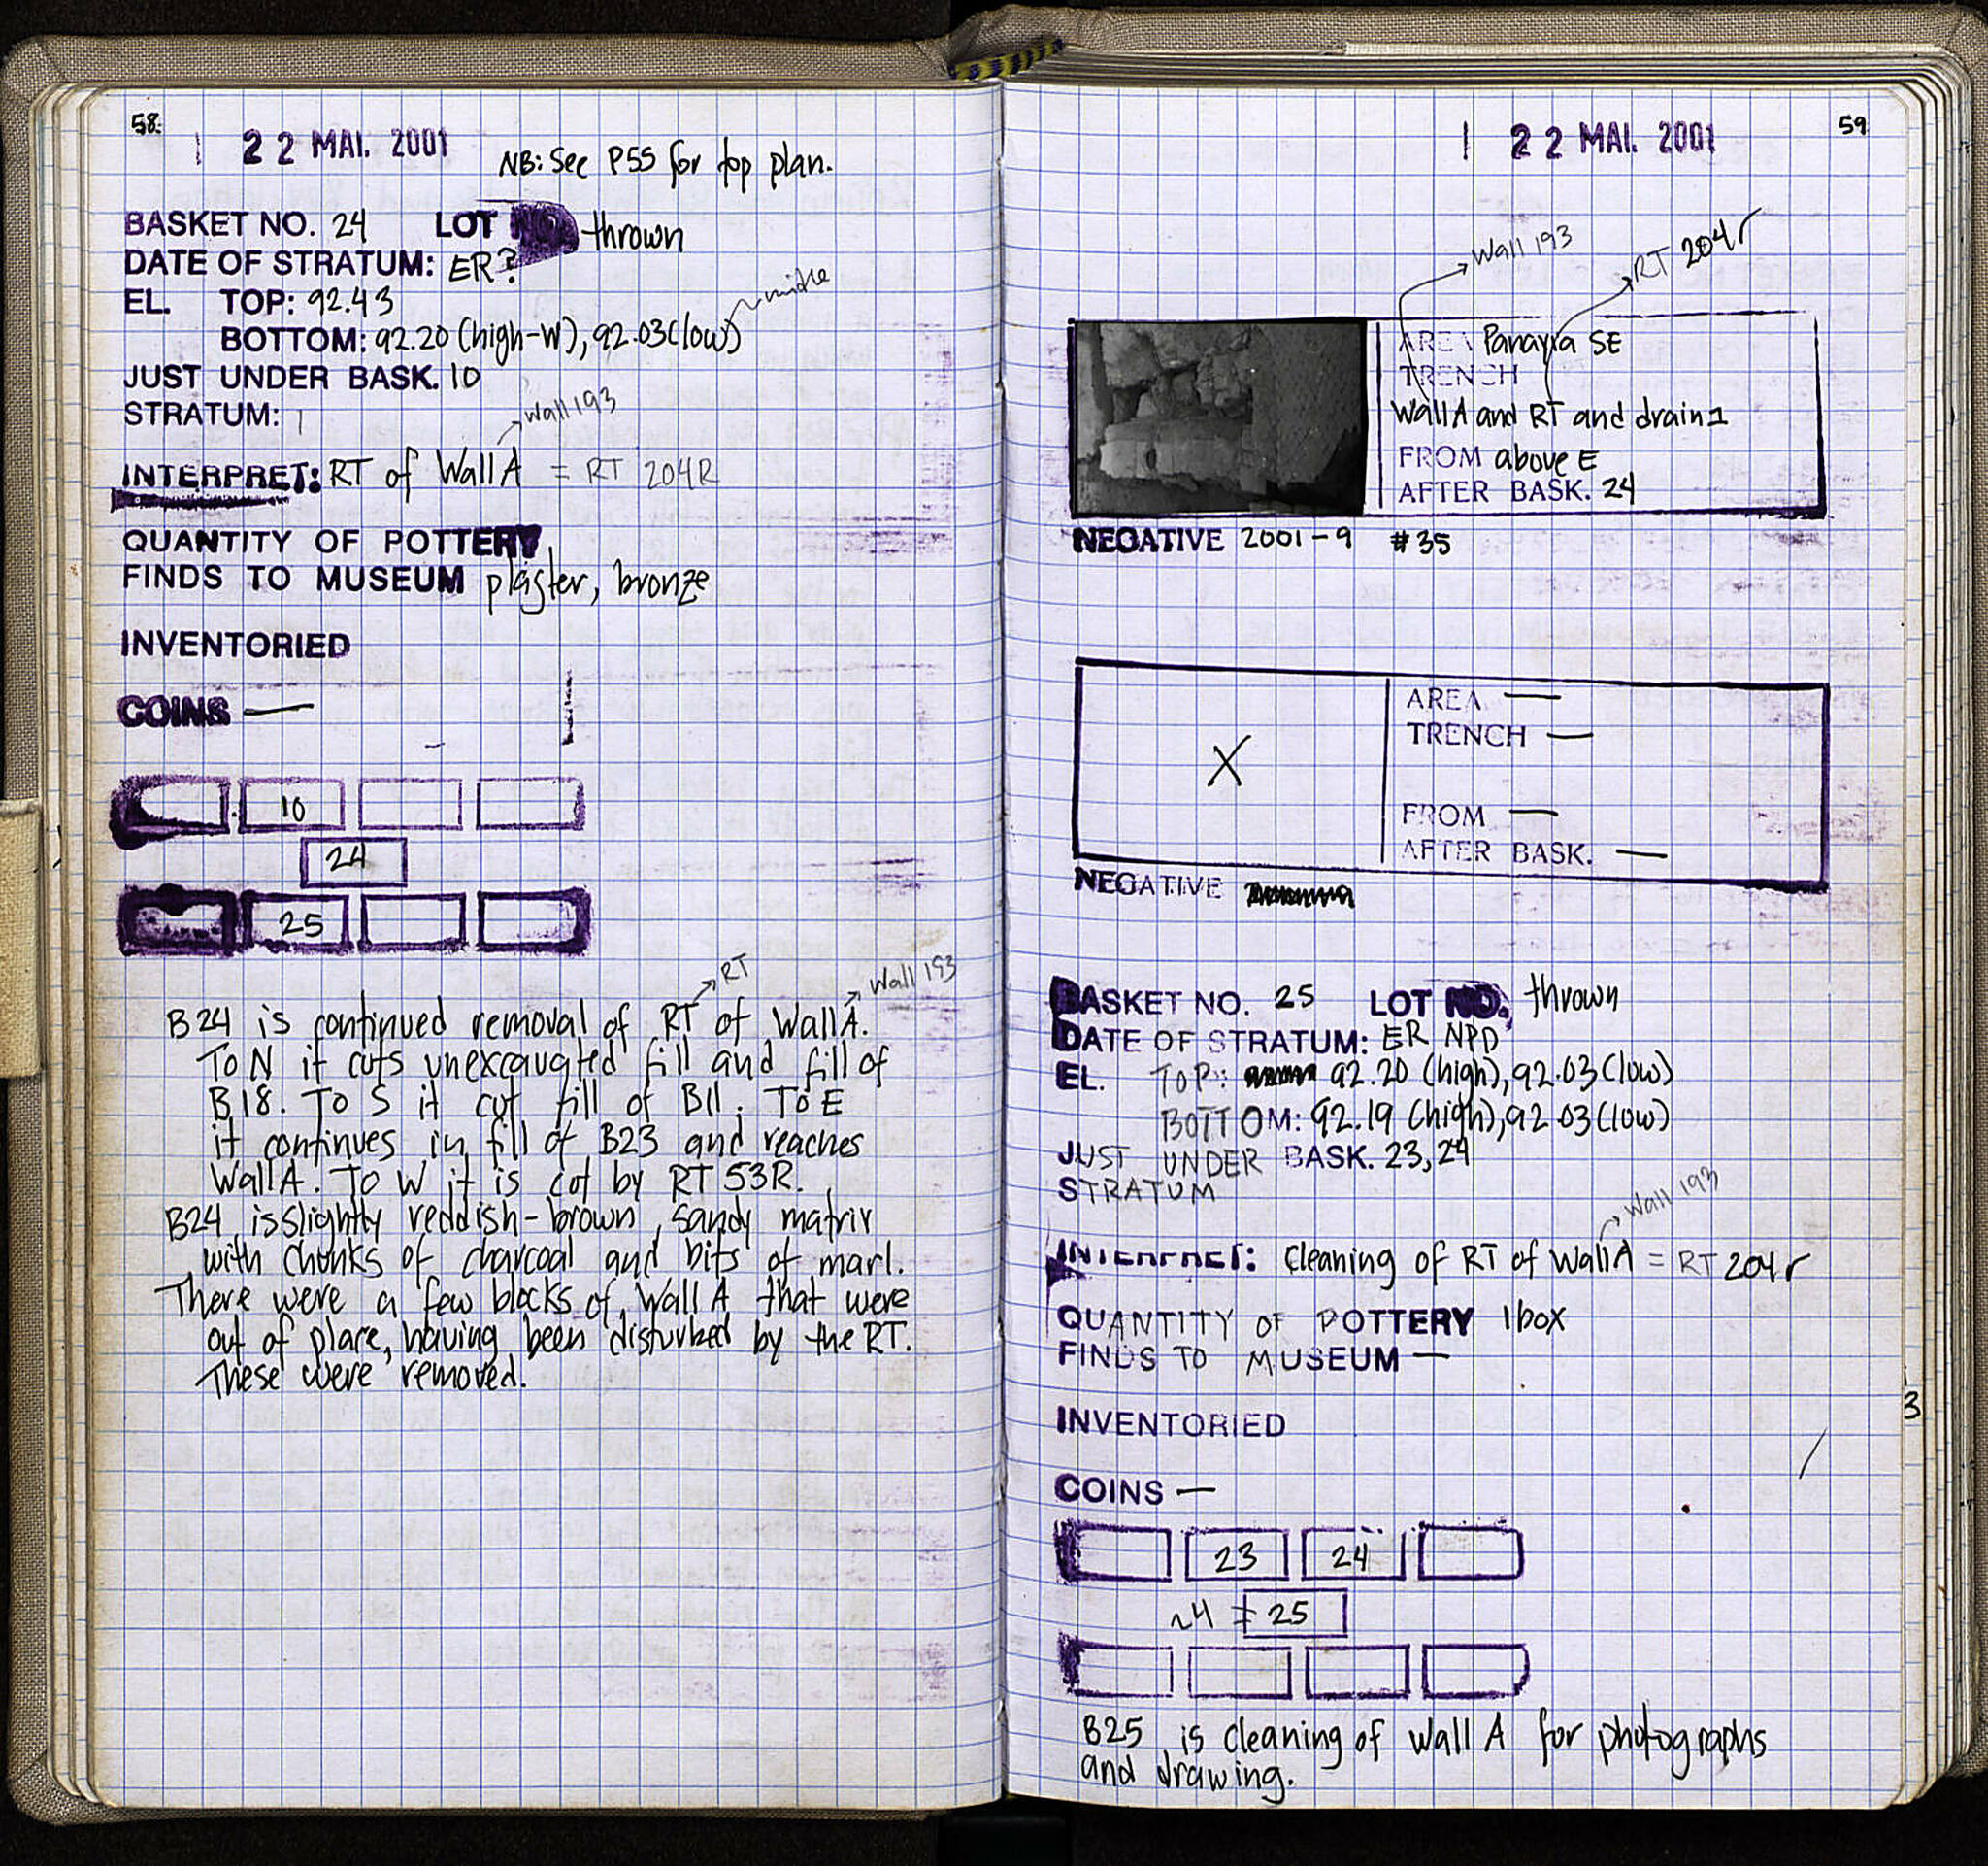 58.
22 MAI. 2001
NB: See P55 for top plan.
BASKET NO. 24 LOT NO. thrown
DATE OF STRATUM: ER?
EL. TOP: 92.43
middle
BOTTOM: 92.20 (high-W), 92.03 (low)
JUST UNDER BASK. 10
STRATUM: 1
Wall 193
INTERPRET: RT of Wall A = RT 204R
QUANTITY OF POTTERY
FINDS TO MUSEUM plaster, bronze
INVENTORIED
COINS —
10
24
25
RT
Wall 193
B24 is continued removal of RT of Wall A.
To N it cuts unexcavated fill and fill of
B18. To S it cut fill of B11. To E
it continues in fill of B23 and reaches
Wall A. To W it is cut by RT 53R.
B24 is slightly reddish-brown, sandy matrix
with chunks of charcoal and bits of marl.
There were a few blocks of Wall A that were
out of place, having been disturbed by the RT.
These were removed.
22 MAI. 2001
59
Wall 193
RT 204r
AREA Panayia SE
TRENCH
Wall A and RT and drain 1
FROM above E
AFTER BASK. 24
NEGATIVE 2001-9 #35
X
AREA —
TRENCH —
FROM —
AFTER BASK. —
NEGATIVE
BASKET NO. 25 LOT NO. thrown
DATE OF STRATUM: ER NPD
EL. TOP: 92.20 (high), 92.03 (low)
BOTTOM: 92.19 (high), 92.03 (low)
JUST UNDER BASK. 23, 24
STRATUM
Wall 193
INTERPRET: Cleaning of RT of Wall A = RT 204r
QUANTITY OF POTTERY 1 box
FINDS TO MUSEUM —
INVENTORIED
COINS —
23 24
25
B25 is cleaning of Wall A for photographs
and drawing.
3